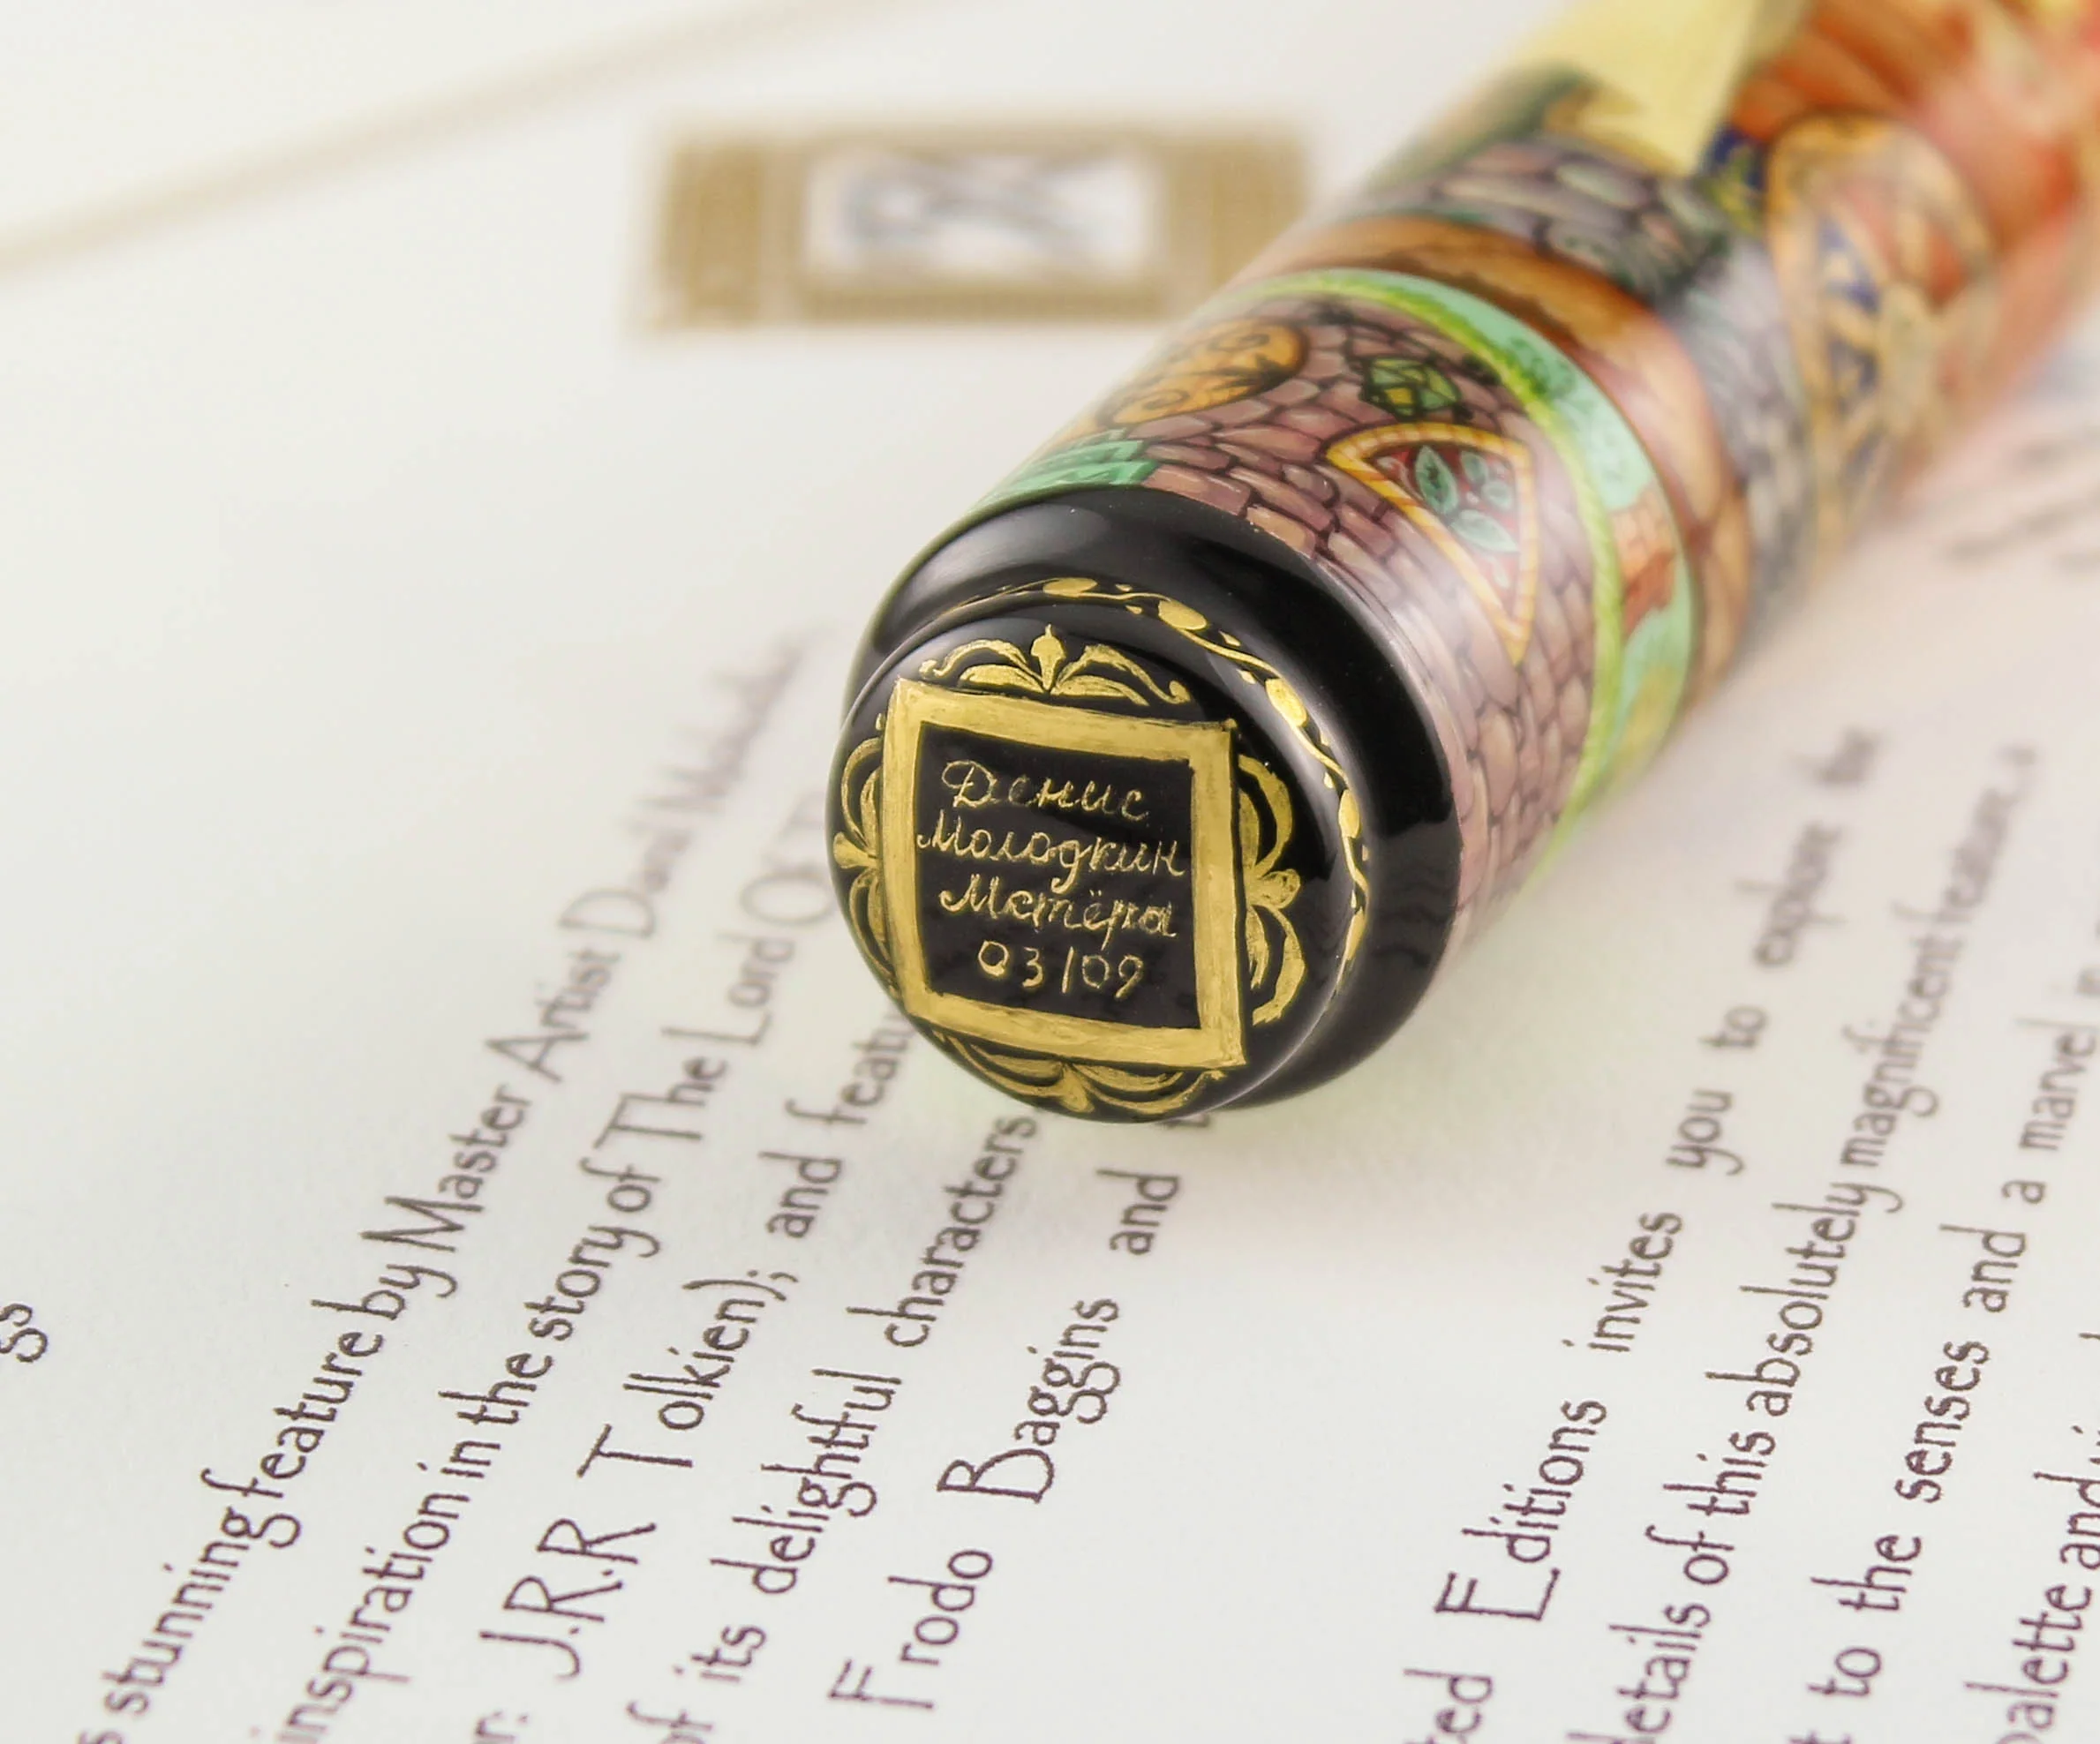 Денис
Молодкин
Мстёра
03/09
gs
s stunning feature by Master Artist
inspiration in the story of The Lord Of
r: J.R.R Tolkien); and featu
of its delightful characters
Frodo Baggins and
ted Editions invites you to explore the
details of this absolutely magnificent
t to the senses and a marvel
palette and